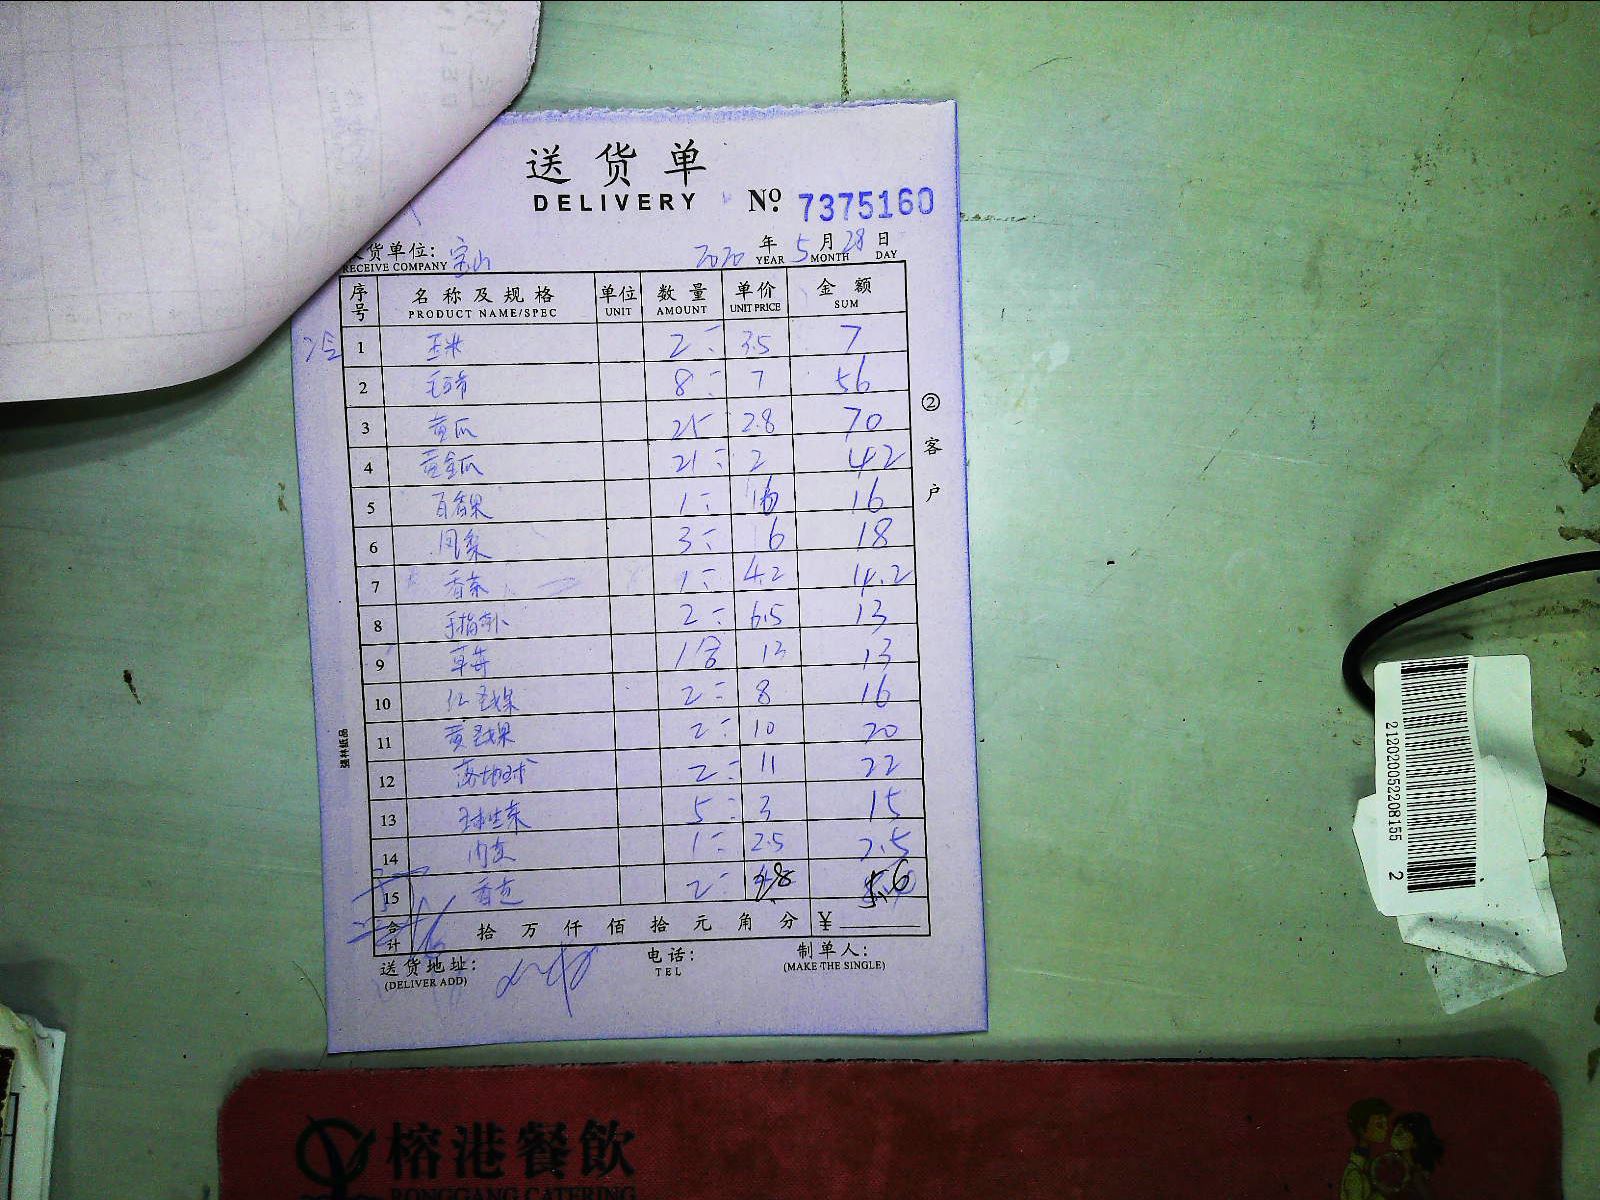 送货单
DELIVERY № 7375160
货单位: 宝山 2020 年 5 月 28 日
RECEIVE COMPANY YEAR MONTH DAY
序号 名称及规格 单位 数量 单价 金额
PRODUCT NAME/SPEC UNIT AMOUNT UNIT PRICE SUM
1 玉米 2 3.5 7
2 8 7 56
3 黄瓜 25 2.8 70
4 黄金瓜 21 2 42
5 百香果 1 16 16
6 凤梨 3 6 18
7 香菜 1 4.2 4.2
8 手指 2 6.5 13
9 草莓 1盒 13 13
10 红圣女果 2 8 16
11 黄圣女果 2 10 20
12 2 11 22
13 球生菜 5 3 15
14 1 2.5 2.5
15 2 5.6
合计 拾 万 仟 佰 拾 元 角 分 ¥
送货地址: 电话: 制单人:
(DELIVER ADD) TEL (MAKE THE SINGLE)
②客户
强林纸品
2120200522208155 2
榕港餐飲
RONGGANG CATERING